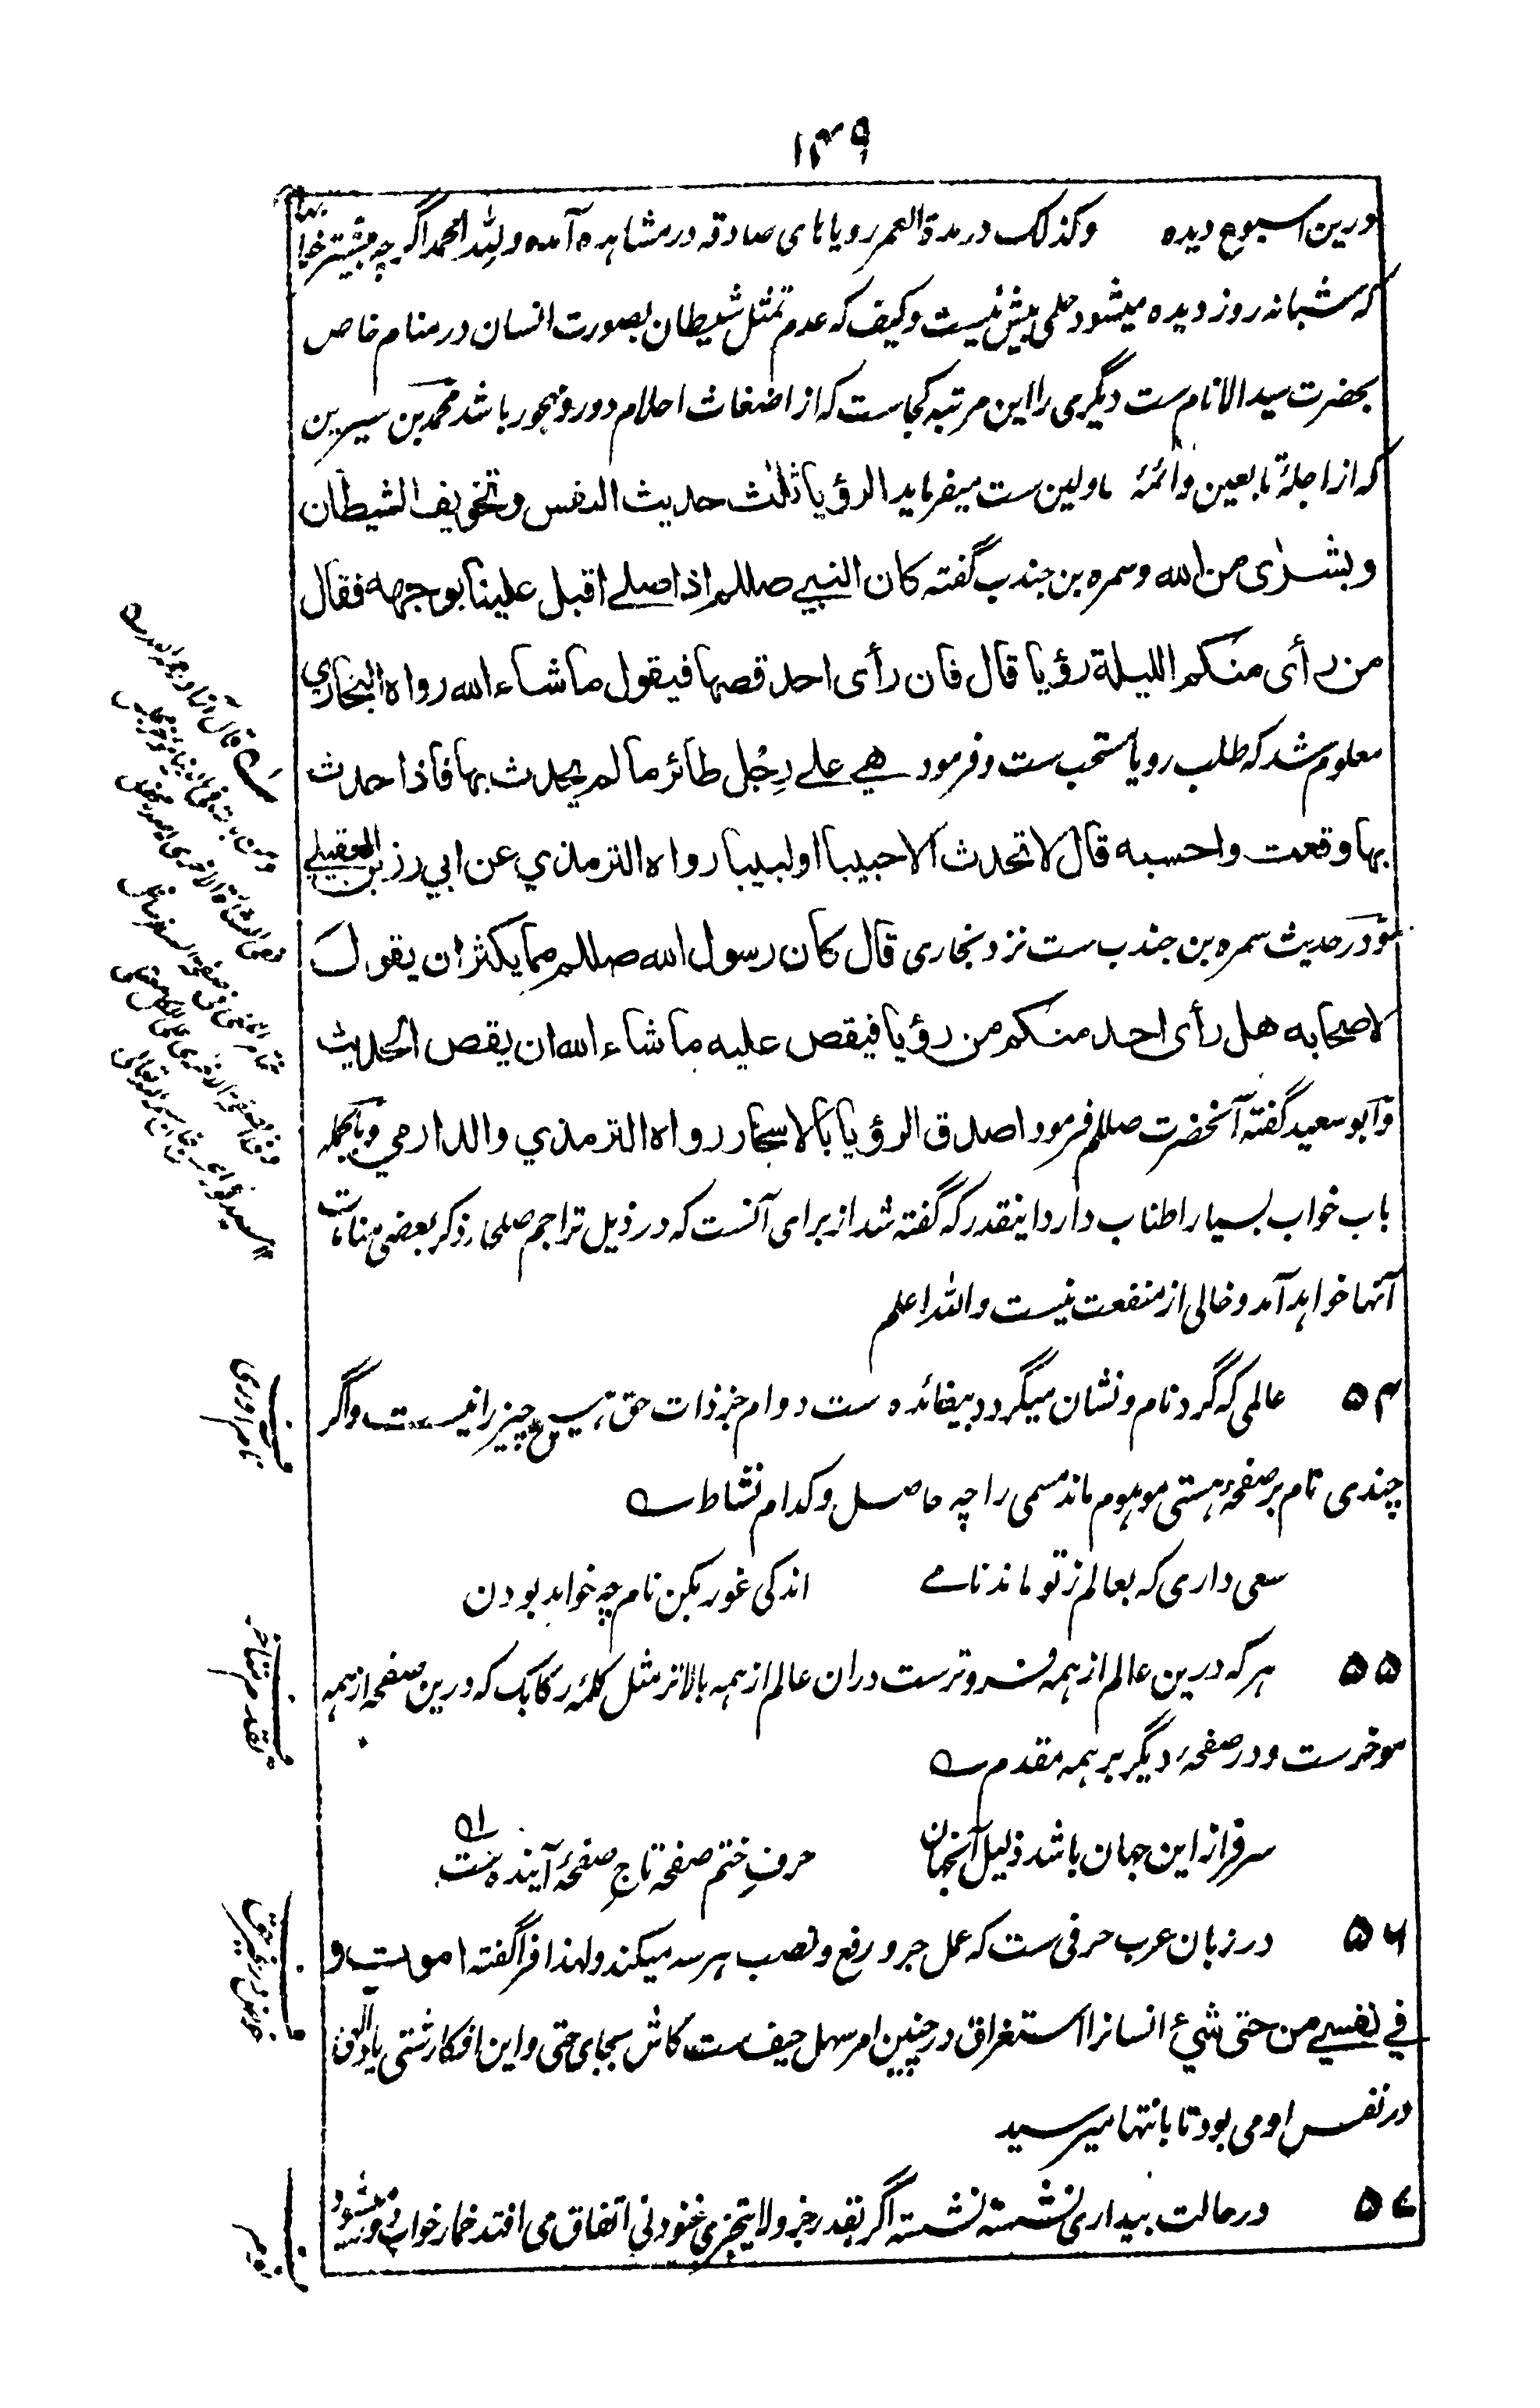 ۱۴۹
درین اسبوع دیده وکذلک در مدة العمر رویاهای صادقه در مشاهده آمده ولله الحمد اگرچه بیشتر خوابها
که شبانه روز دیده میشود حلمی بیش نیست وکیف که عدم تمثل شیطان بصورت انسان در منام خاص
بحضرت سید الانام ست دیگری را این مرتبه کجاست که از اضغاث احلام دور و مهجور باشد محمد بن سیرین
که از اجلهٔ تابعین وائمهٔ ماولین ست میفرماید الرؤیا ثلث حدیث النفس وتخویف الشیطان
وبشرٰی من الله وسمره بن جندب گفته کان النبي صللم اذا صلے اقبل علینا بوجهه فقال
من رأی منکم اللیلة رؤیا قال فان رأی احد قصها فیقول ما شاء الله رواه البخاري
معلوم شد که طلب رویا مستحب ست وفرمود هي علے رِجْل طائر ما لم یحدث بها فاذا حدث
بها وقعت واحسبه قال لا تحدث الا حبیبا او لبیبا رواه الترمذي عن ابي رزین العقیلي
ودر حدیث سمره بن جندب ست نزد بخاری قال کان رسول الله صللم مما یکثر ان یقول
لاصحابه هل رأی احد منکم من رؤیا فیقص علیه ما شاء الله ان یقص الحدیث
وابو سعید گفته آنحضرت صللم فرمود اصدق الرؤیا بالاسحار رواه الترمذي والدارمي وبالجمله
باب خواب بسیار اطناب دارد اینقدر که گفته شد از برای آنست که در ذیل تراجم صلحا ذکر بعضی منامات
آنها خواهد آمد وخالی از منفعت نیست والله اعلم
۵۴ عالمی که گرد نام ونشان میگردد بیفائده ست دوام جز ذات حق هیچ چیز را نیست واگر
چندی نام بر صفحهٔ هستی موهوم ماند مسمی را چه حاصل وکدام نشاط
سعی داری که بعالم ز تو ماند نامے اندکی غور بکن نام چه خواهد بودن
۵۵ هر که درین عالم از همه فروترست دران عالم از همه بالاتر مثل کلمهٔ رکابک که درین صفحه از همه
موخرست ودر صفحهٔ دیگر بر همه مقدم
سرفراز این جهان باشد ذلیل آنجهان حرفِ ختم صفحه تاجِ صفحهٔ آینده است
۵۶ در زبان عرب حرفی ست که عمل جر ورفع ونصب هر سه میکند ولهذا فرا گفته اموت و
في نفسي من حتی شيء انسانرا استغراق در چنین امر سهل حیف ست کاش بجای حتی واین افکار شتی یاد الهی
در نفس او می بود تا بانتها میرسید
۵۷ در حالت بیداری نشسته نشسته اگر بقدر جزو لا یتجزی غنودنی اتفاق می افتد خمار خواب